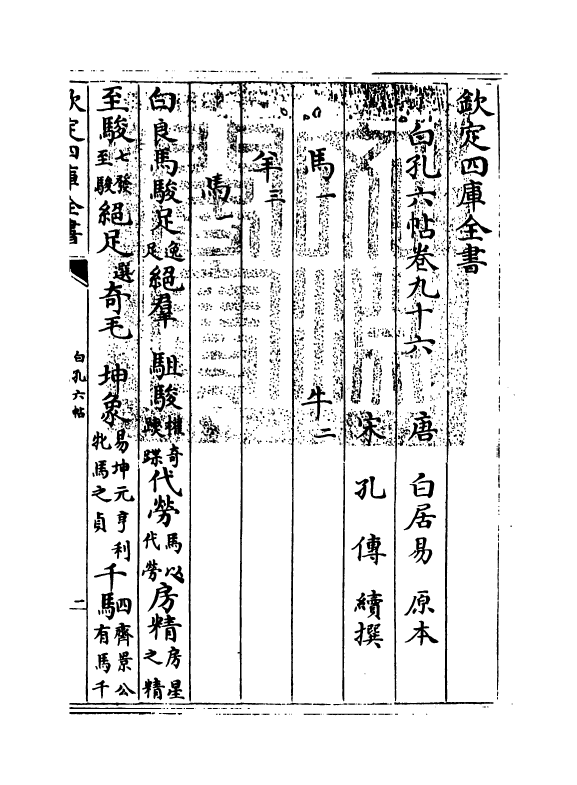 欽定四庫全書
白孔六帖卷九十六　唐　白居易　原本
宋　孔　傳　續撰
馬一　牛二
羊三
馬一
白良馬駿足逸足絕羣　駔駿權奇䠱蹀代勞馬以代勞房精房星之精
至駿七發至駿絕足選奇毛　坤象易坤元亨利牝馬之貞千駟四齊景公有馬千
欽定四庫全書
白孔六帖
二